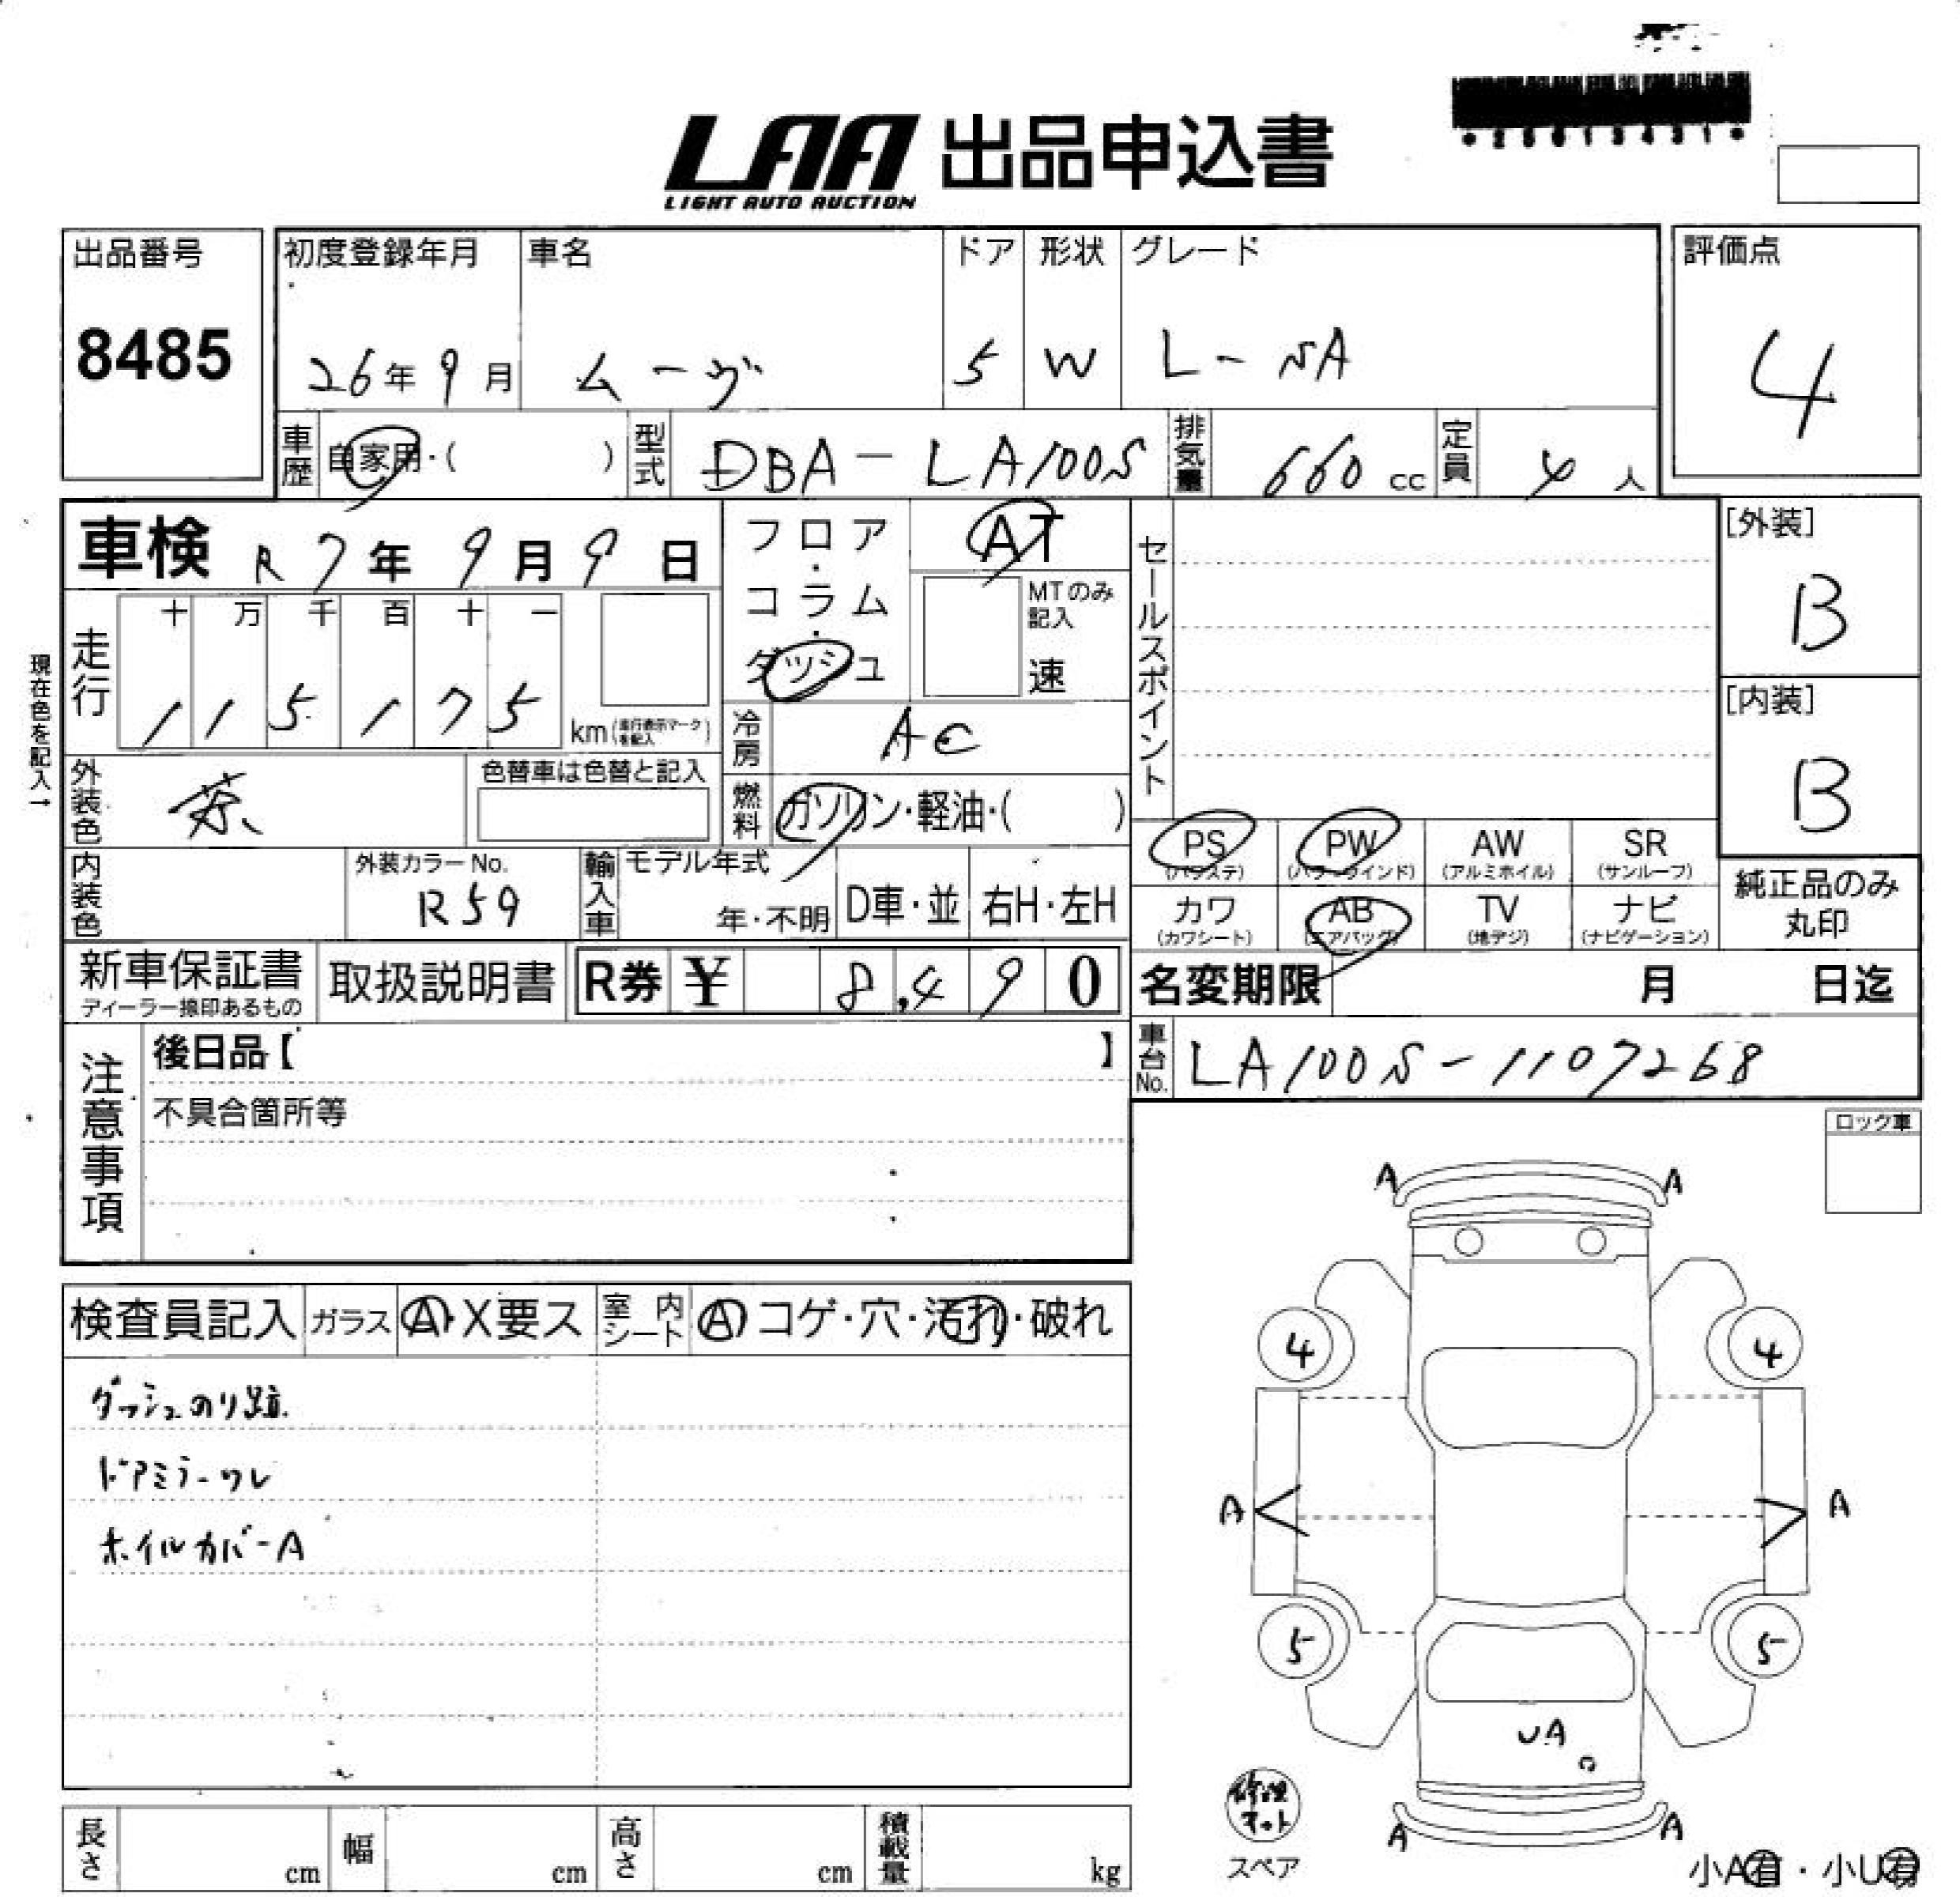 LAA 出品申込書
LIGHT AUTO AUCTION
出品番号
8485
初度登録年月
26年9月
車名
ムーヴ
ドア
5
形状
W
グレード
L-SA
評価点
4
車歴 自家用・( )
型式 DBA-LA100S
排気量 660 cc
定員 4 人
車検 R7年9月9日
フロア・コラム・ダッシュ
AT
MTのみ記入
速
セールスポイント
[外装]
B
[内装]
B
現在色を記入→
走行
十 万 千 百 十 一
1 1 5 1 7 5
km(走行表示マークを記入)
冷房 AC
外装色 茶
色替車は色替と記入
燃料 ガソリン・軽油・( )
PS (パワステ)
PW (パワーウインド)
AW (アルミホイル)
SR (サンルーフ)
カワ (カワシート)
AB (エアバッグ)
TV (地デジ)
ナビ (ナビゲーション)
純正品のみ
丸印
内装色
外装カラーNo.
R59
輸入車
モデル年式
年・不明
D車・並
右H・左H
新車保証書
ディーラー捺印あるもの
取扱説明書
R券 ¥ 8,490
名変期限 月 日迄
注意事項
後日品【 】
不具合箇所等
車台No. LA100S-1107268
ロック車
検査員記入
ガラス A・X要ス
室内シート A コゲ・穴・汚れ・破れ
ダッシュのり跡
ドアミラーワレ
ホイルカバーA
A A
4 4
A A
5 5
UA
A A
修理キット
スペア
小A有・小U有
長さ cm
幅 cm
高さ cm
積載量 kg